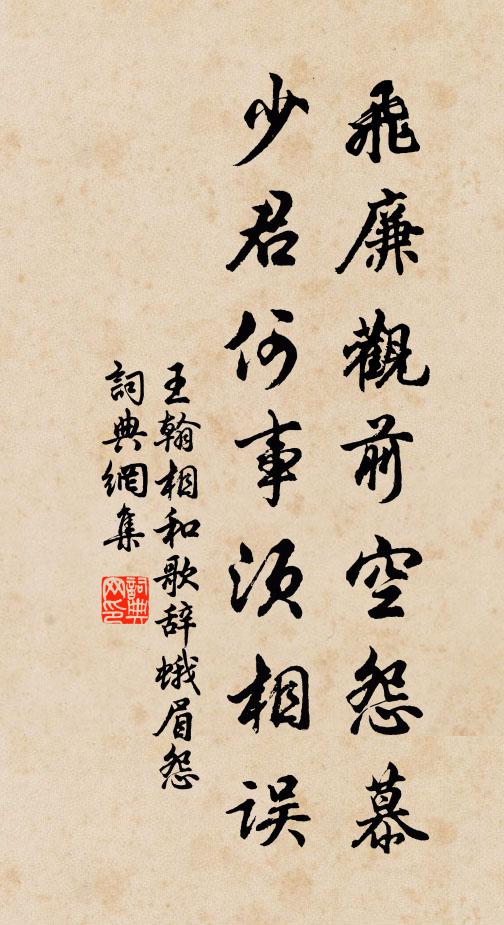 飛廉觀前空怨慕
少君何事須相誤
王翰相和歌辞蛾眉怨
詞典網集
詞典
网印